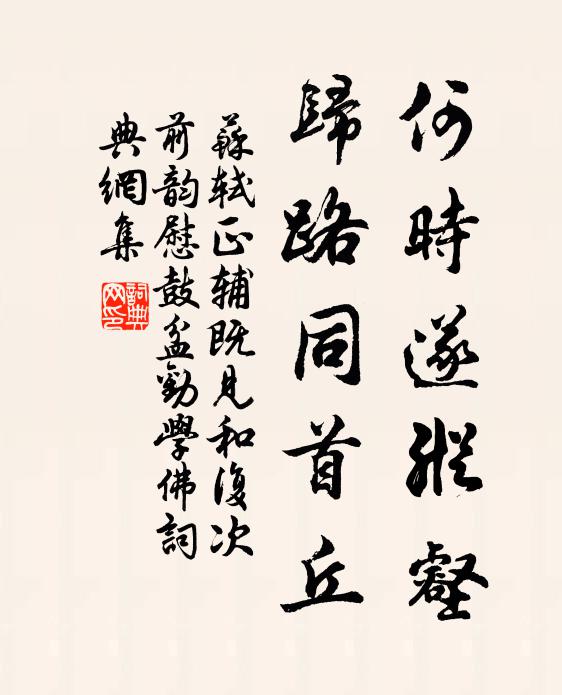 何時遂縱壑
歸路同首丘
蘇軾正輔既見和復次
前韵慰鼓盆勸學佛詞
典網集
詞典網印